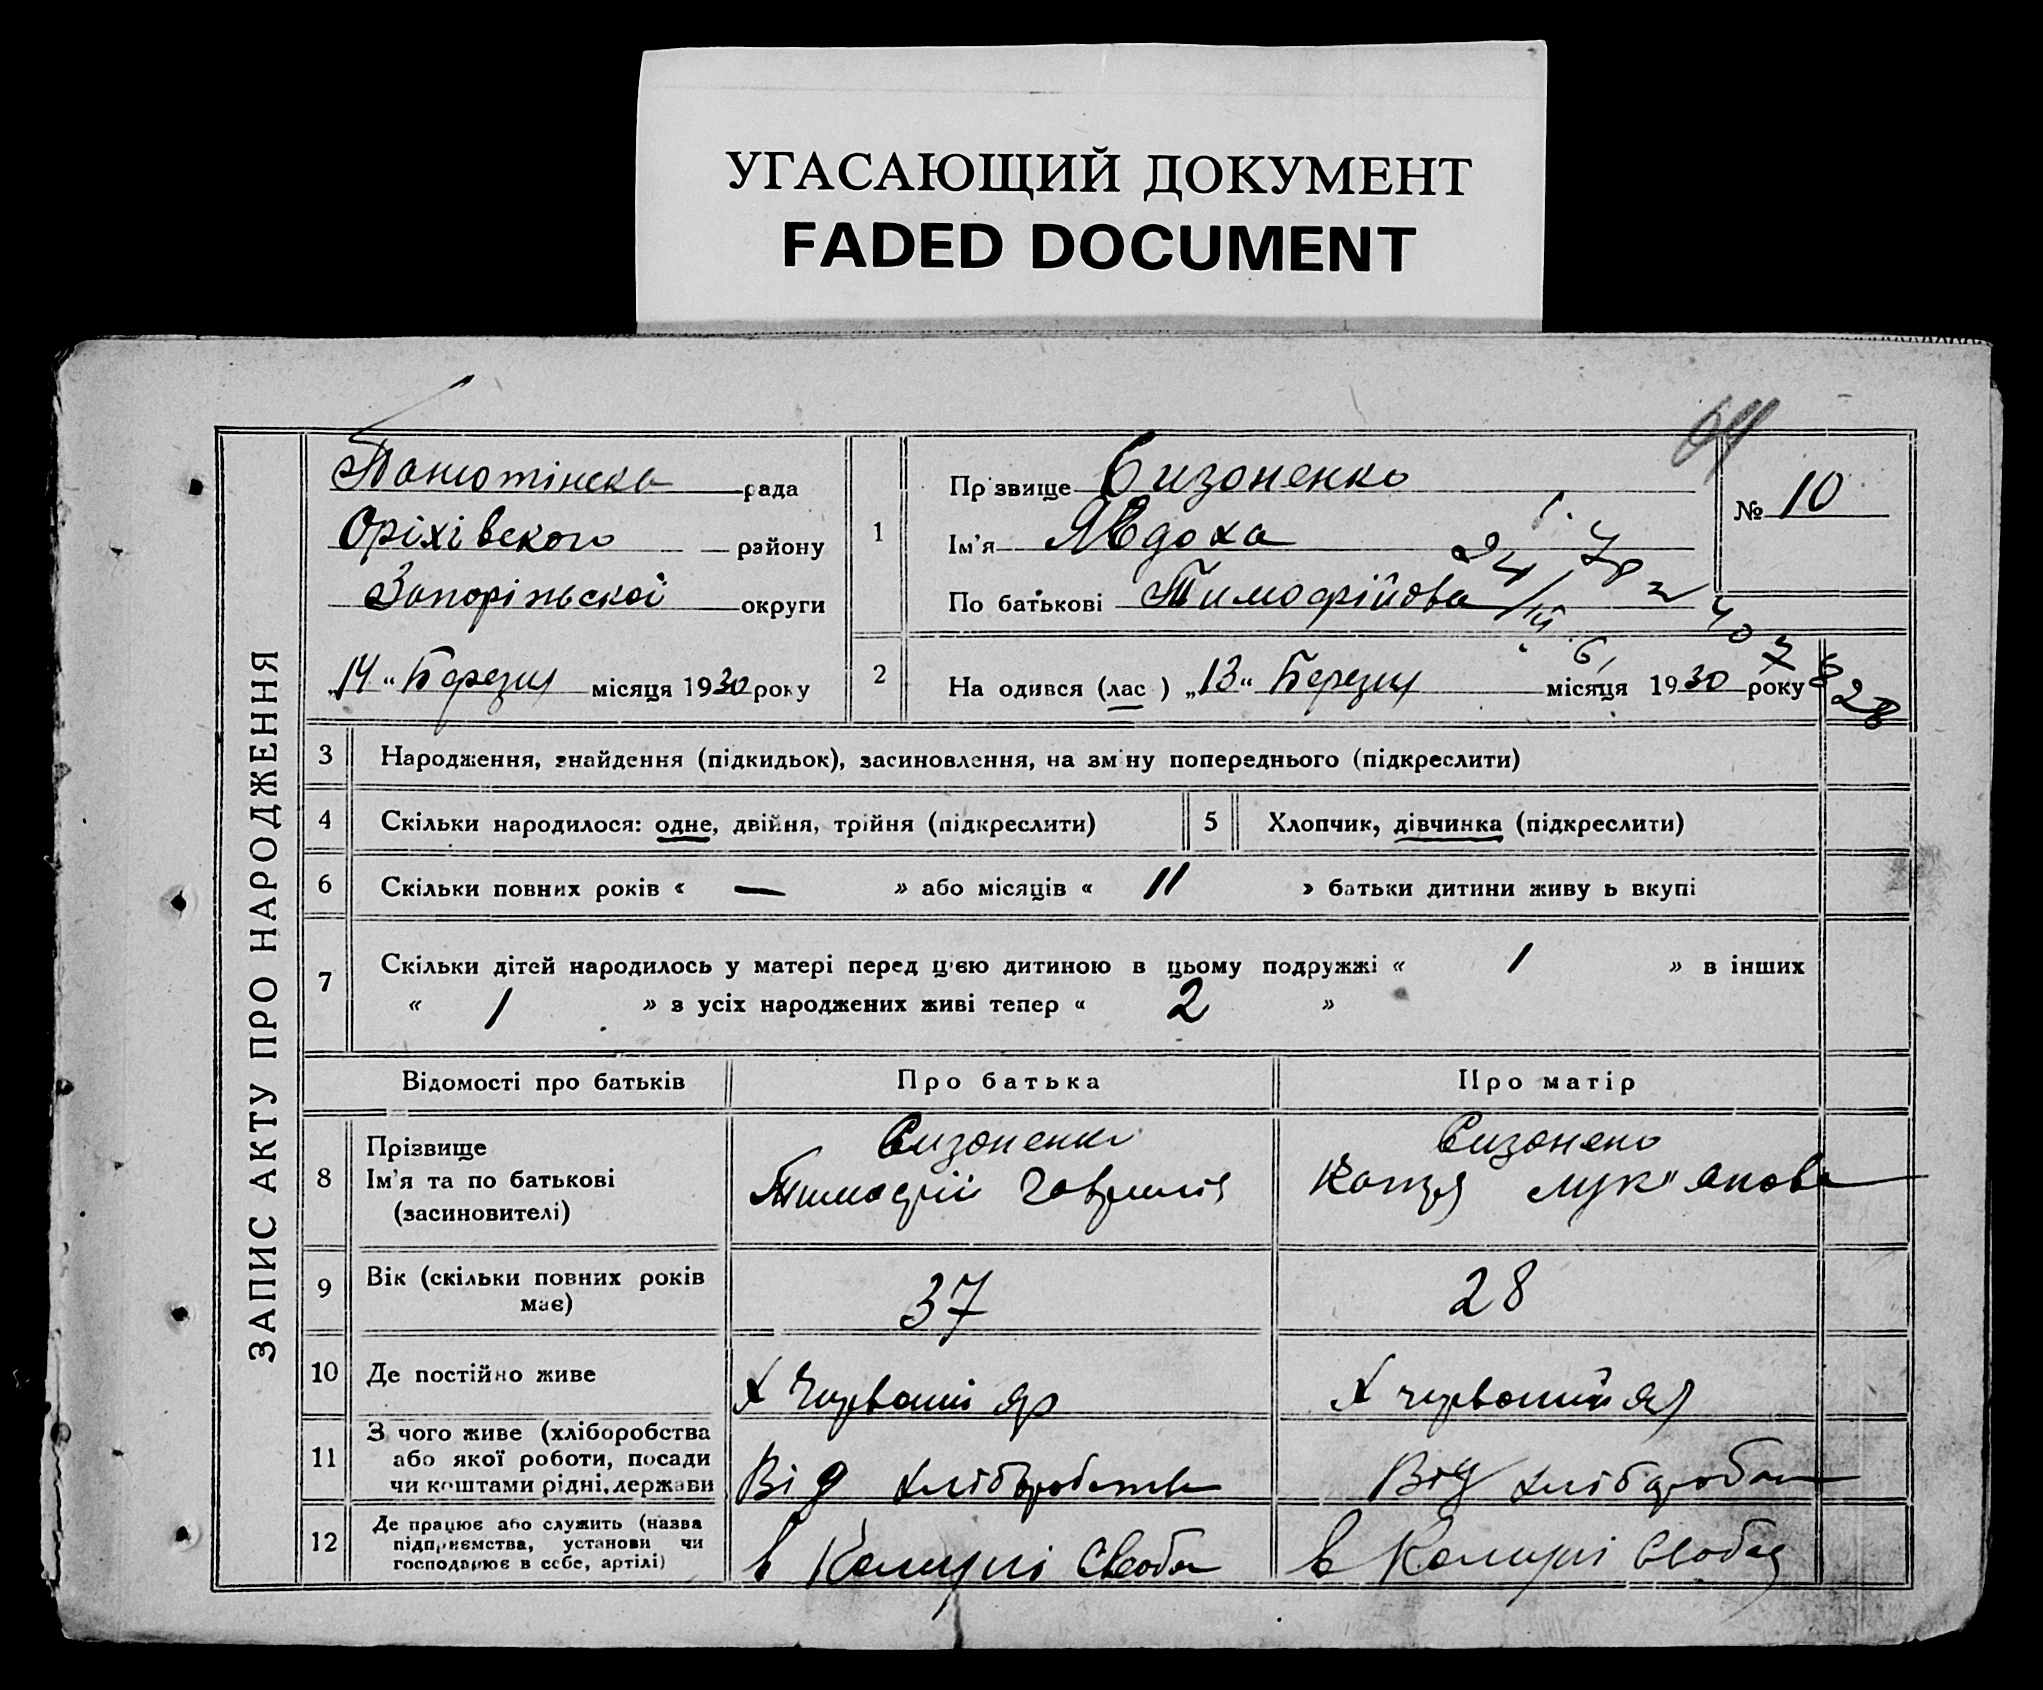 УГАСАЮЩИЙ ДОКУМЕНТ
FADED DOCUMENT
64
ЗАПИС АКТУ ПРО НАРОДЖЕННЯ
рада
Оріхівского району
Запоріжської округи
„14“ Березня місяця 1930 року
1
Прізвище Сизоненко
Ім'я Явдоха
По батькові Тимофійова
№ 10
2
На одився (лас ) „13“ Березня місяця 1930 року
3 Народження, знайдення (підкидьок), засиновлення, на зміну попереднього (підкреслити)
4 Скільки народилося: одне, двійня, трійня (підкреслити)
5 Хлопчик, дівчинка (підкреслити)
6 Скільки повних років « — » або місяців « 11 » батьки дитини живу ь вкупі
7 Скільки дітей народилось у матері перед цією дитиною в цьому подружжі « 1 » в інших
« 1 » з усіх народжених живі тепер « 2 »
Відомості про батьків
Про батька
Про матір
8 Прізвище
Ім'я та по батькові
(засиновителі)
Сизоненко
Тимофій
Сизонено
Лук"янова
9 Вік (скільки повних років
має)
37
28
10 Де постійно живе
Х Червоний яр
Х червоний яр
11 З чого живе (хліборобства
або якої роботи, посади
чи коштами рідні, держави
Від хліборобства
Від
12 Де працює або служить (назва
підприємства, установи чи
господарює в себе, артілі)
в Комуні Свобода
в Комуні Свобода